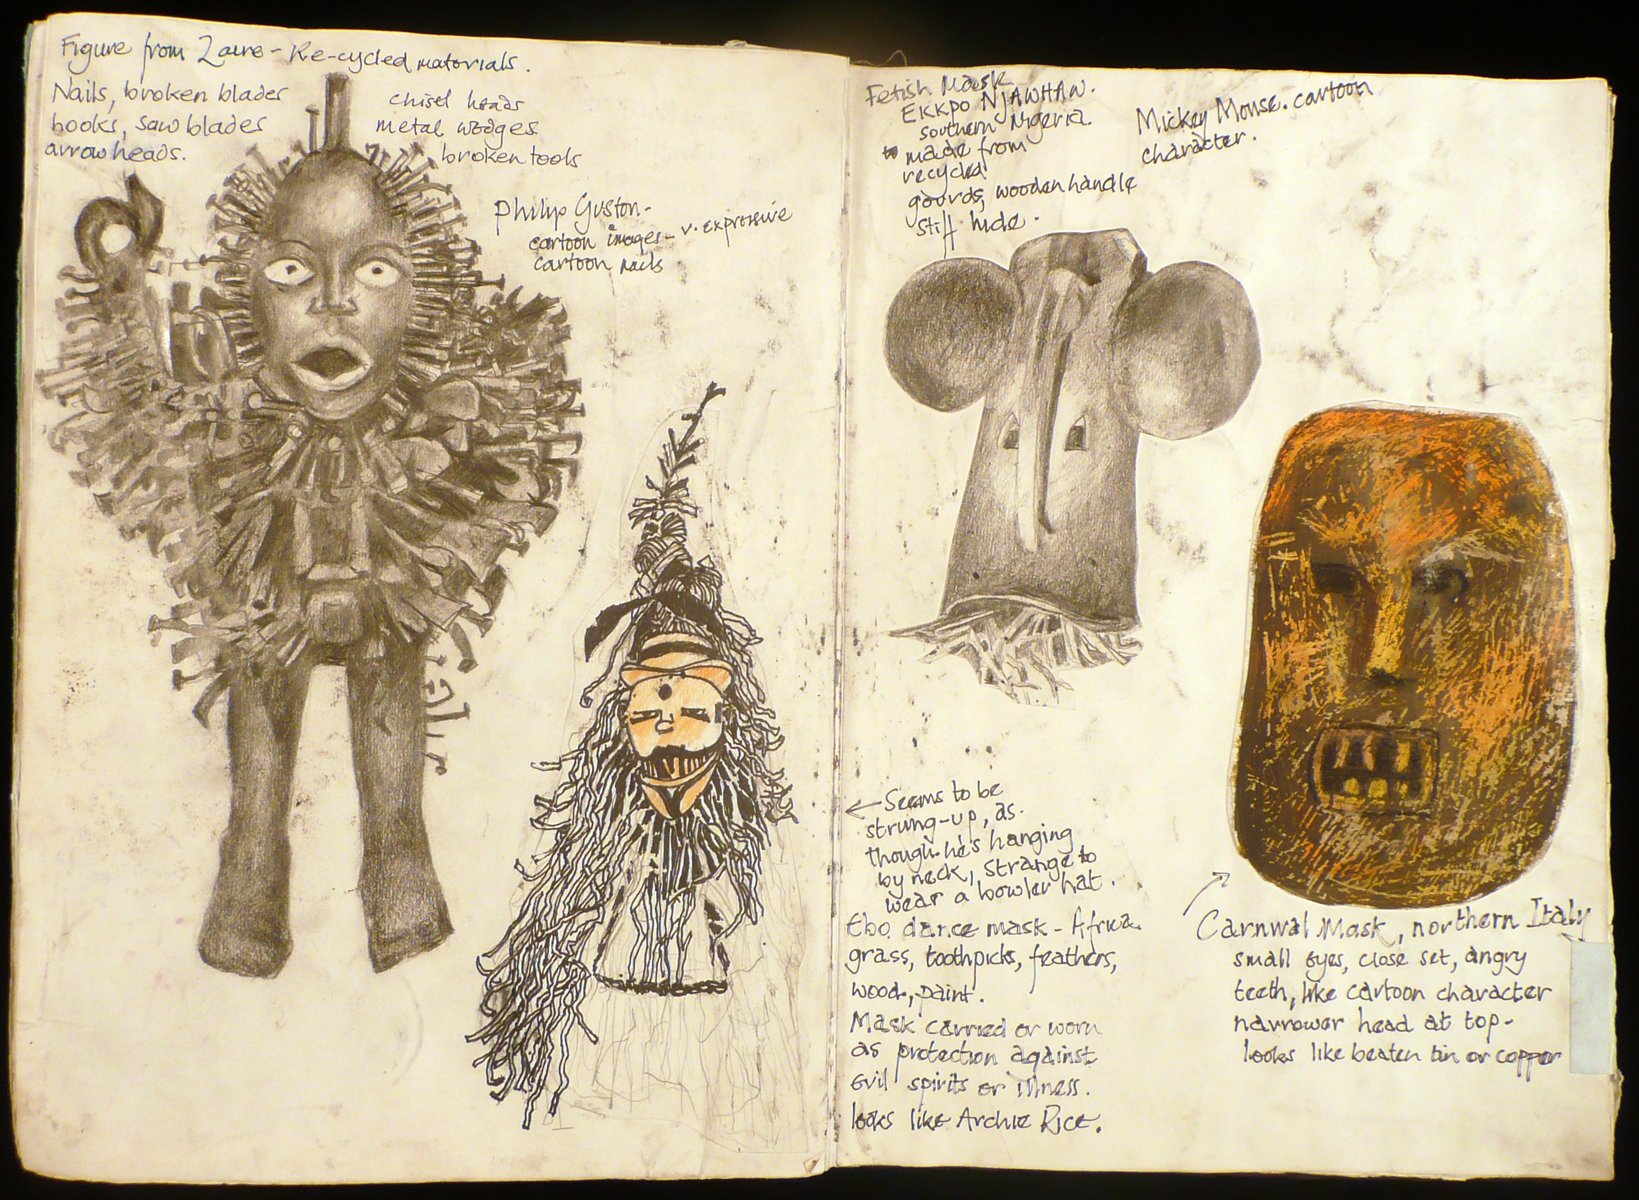 Figure from Zaire - Re-cycled materials.
Nails, broken blades
hooks, saw blades
arrow heads.
chisel heads
metal wedges
broken tools
Philip Guston -
cartoon images - v. expressive
cartoon nails
Fetish Mask
EKKPO NJAWHAW.
southern Nigeria.
made from
recycled
gourds, wooden handle
stiff hide.
Mickey Mouse. cartoon
character.
Seems to be
strung-up, as.
though he's hanging
by neck, strange to
wear a bowler hat.
Ebo dance mask - Africa.
grass, toothpicks, feathers,
wood, paint.
Mask carried or worn
as protection against
evil spirits or illness.
looks like Archie Rice.
Carnival Mask, northern Italy
small eyes, close set, angry
teeth, like cartoon character
narrower head at top -
looks like beaten tin or copper